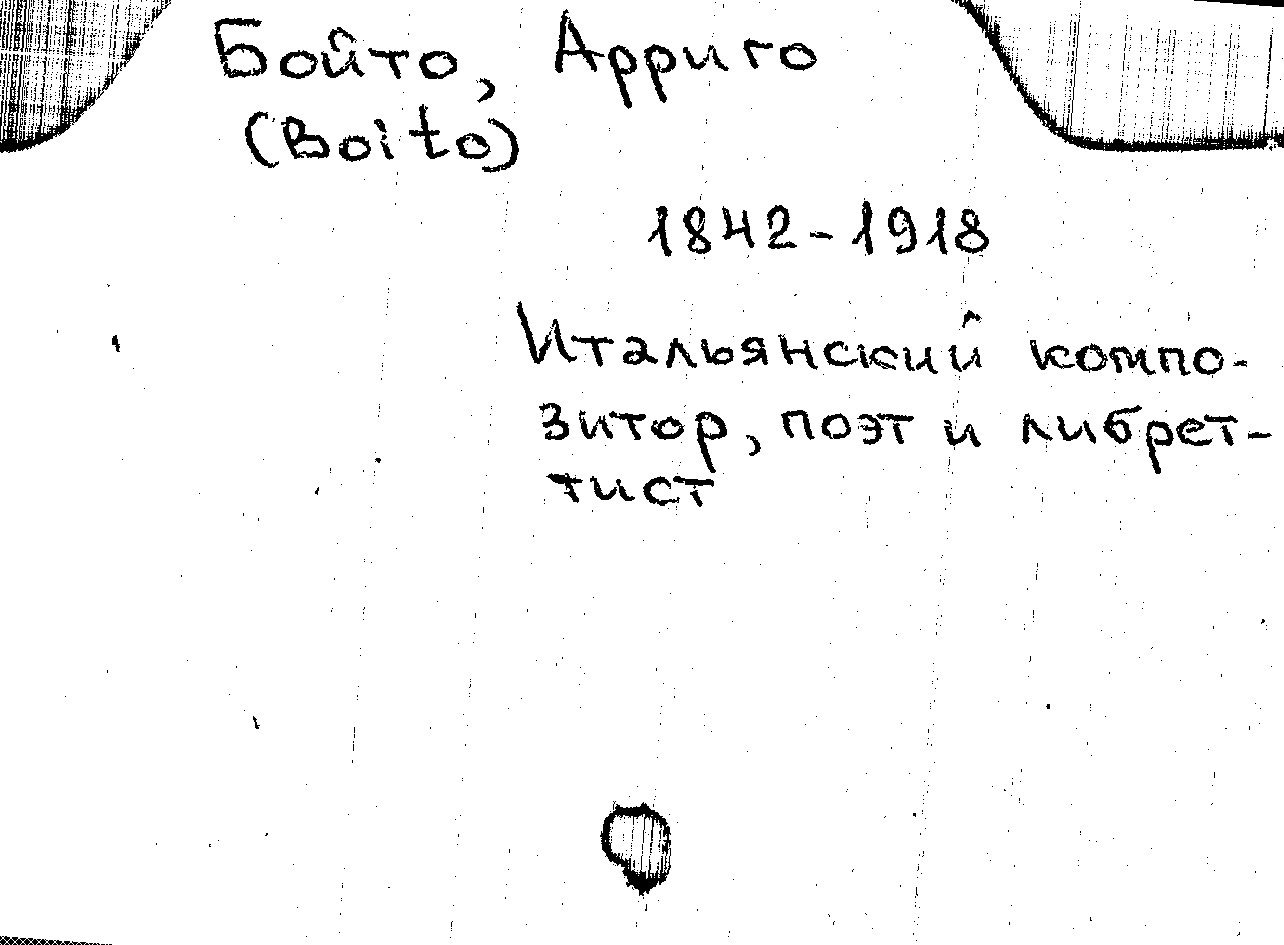 Бойто, Арриго
(Boito)
1842-1918
Итальянский компо-
зитор, поэт и либрет-
тист